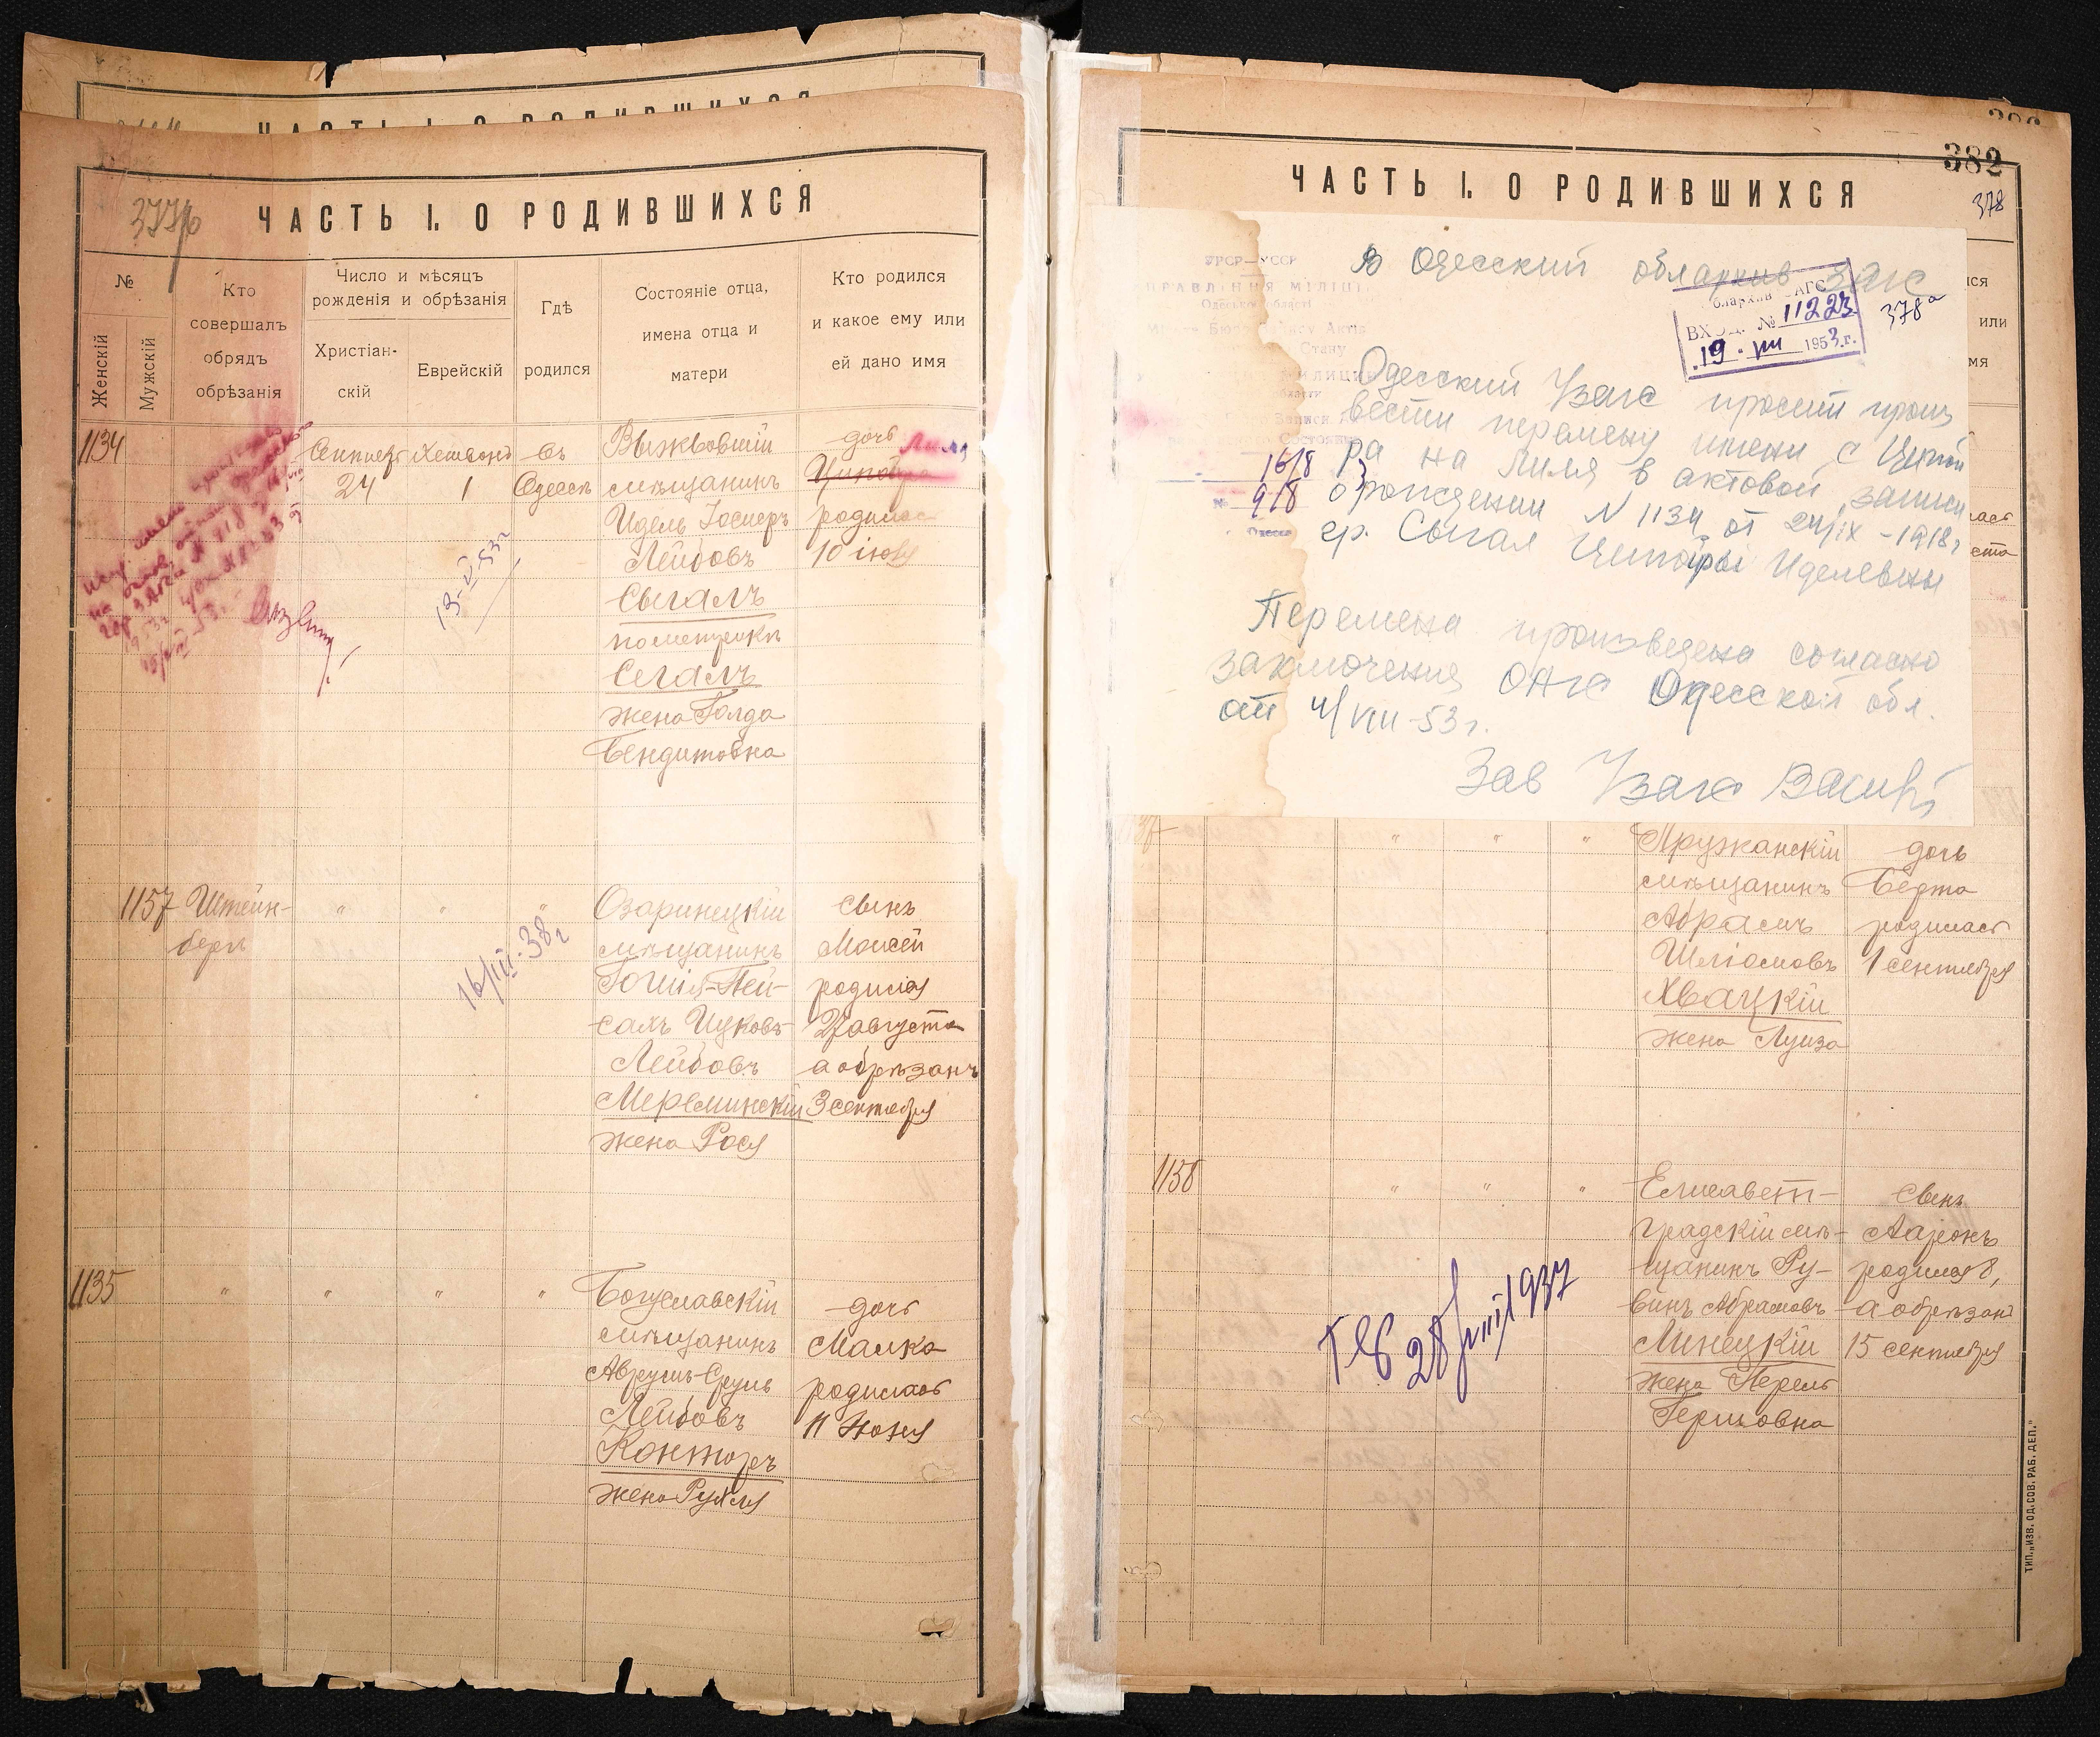 ЧАСТЬ I. О РОДИВШИХСЯ
ЧАСТЬ I. О РОДИВШИХСЯ
№
Женскій
Мужскій
Кто
совершалъ
обрядъ
обрѣзанія
Число и мѣсяцъ
рожденія и обрѣзанія
Христіан-
скій
Еврейскій
Гдѣ
родился
Состояніе отца,
имена отца и
матери
Кто родился
и какое ему или
ей дано имя
1134
24
1
въ
Одессѣ
мѣщанинъ
Идель
Лейбовъ
Сыгалъ
Сегалъ
жена Голда
Бендитовна
дочь Лиля
Ципойра
родилась
10 іюня
13-V 53г
1157
Штейн-
бергъ
" " "
Озаринецкій
мѣщанинъ
Лейбовъ
Мереминскій
жена Рося
сынъ
Моисей
родился
27 августа
а обрѣзанъ
3 сентября
16/III-38г
1135
" " " "
Богуславскій
мѣщанинъ
Лейбовъ
Конторъ
дочь
Малка
родилась
382
378
ЧАСТЬ I. О РОДИВШИХСЯ
В Одесский обл архив Загс
ВХОД. № 11223
19. VIII 1953 г.
378а
Одесский Узагс просит произ
вести перемену имени с Ципой
ра на Лиля в актовой записи
о рождении N 1134 от 24/IX-1918г
гр. Сыгал Ципойры Иделевны
16/8
9/8
Перемена произведена согласно
заключения ОАГС Одесской обл.
от 4/VIII-53 г.
Зав Узагс
" " "
Пружанскій
мѣщанинъ
Абрамъ
Шліомовъ
Хвацкій
жена Луиза
дочь
Берта
родилась
1 сентября
1158
" " "
Елисавет-
градскій мѣ-
щанинъ Ру-
винъ Абрамовъ
Линецкій
жена Перель
Гершовна
сынъ
Ааронъ
родился 8,
а обрѣзанъ
15 сентября
28/VIII 1937
ТИП. „ИЗВ. ОД. СОВ. РАБ. ДЕП."